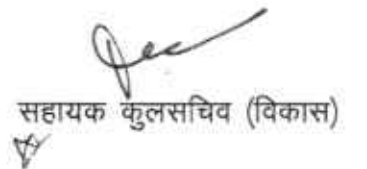 सहायक कुलसचिव (विकास)